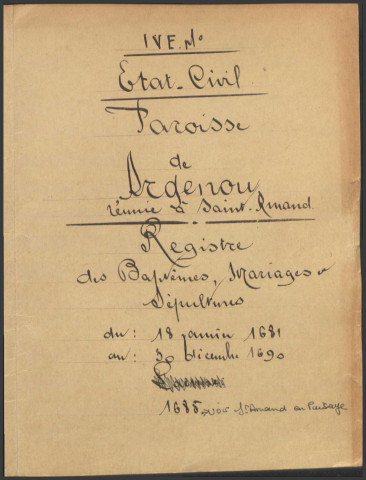 IVE. No
Etat-Civil
Paroisse
de
Argenou
réunie à Saint-Amand
Registre
des Baptêmes, Mariages et
Sépultures
du : 18 janvier 1681
au : 30 décembre 1690
1685 voir St Amand en Puisaye